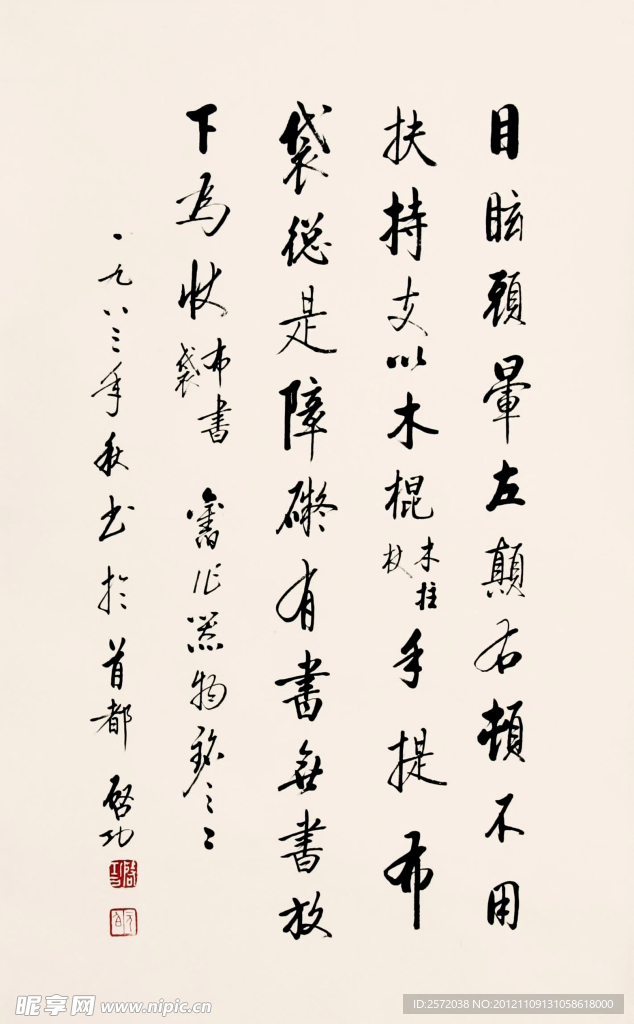 目眩頭暈左顛右頓不用
扶持支以木棍木拄杖手提布
袋總是障礙有書無書放
下為快布書袋 舊作器物銘之二
一九八三年秋书於首都 啓功
昵享网 www.nipic.cn
ID:2572038 NO:20121109131058618000